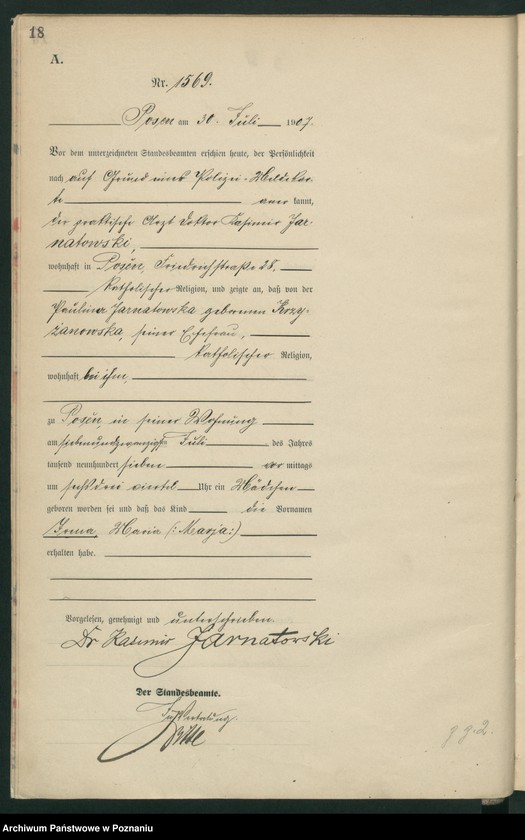 18
A.
Nr. 1569.
Posen am 30. Juli 1907.
Vor dem unterzeichneten Standesbeamten erschien heute, der Persönlichkeit
nach auf Grund eines Polizei-Meldekar-
te anerkannt,
der praktische Arzt Doktor Kasimir Jar-
natowski,
wohnhaft in Posen, Friedrichstraße 28,
katholischer Religion, und zeigte an, daß von der
Paulina Jarnatowska geborenen Krzy-
żanowska, seiner Ehefrau,
katholischer Religion,
wohnhaft bei ihm,
zu Posen in seiner Wohnung
am siebenundzwanzigsten Juli des Jahres
tausend neunhundert sieben vormittags
um sechs drei viertel Uhr ein Mädchen
geboren worden sei und daß das Kind die Vornamen
Irena, Maria (:Marja:)
erhalten habe.
Vorgelesen, genehmigt und unterschrieben
Dr Kasimir Jarnatowski
Der Standesbeamte.
In Vertretung.
Archiwum Państwowe w Poznaniu